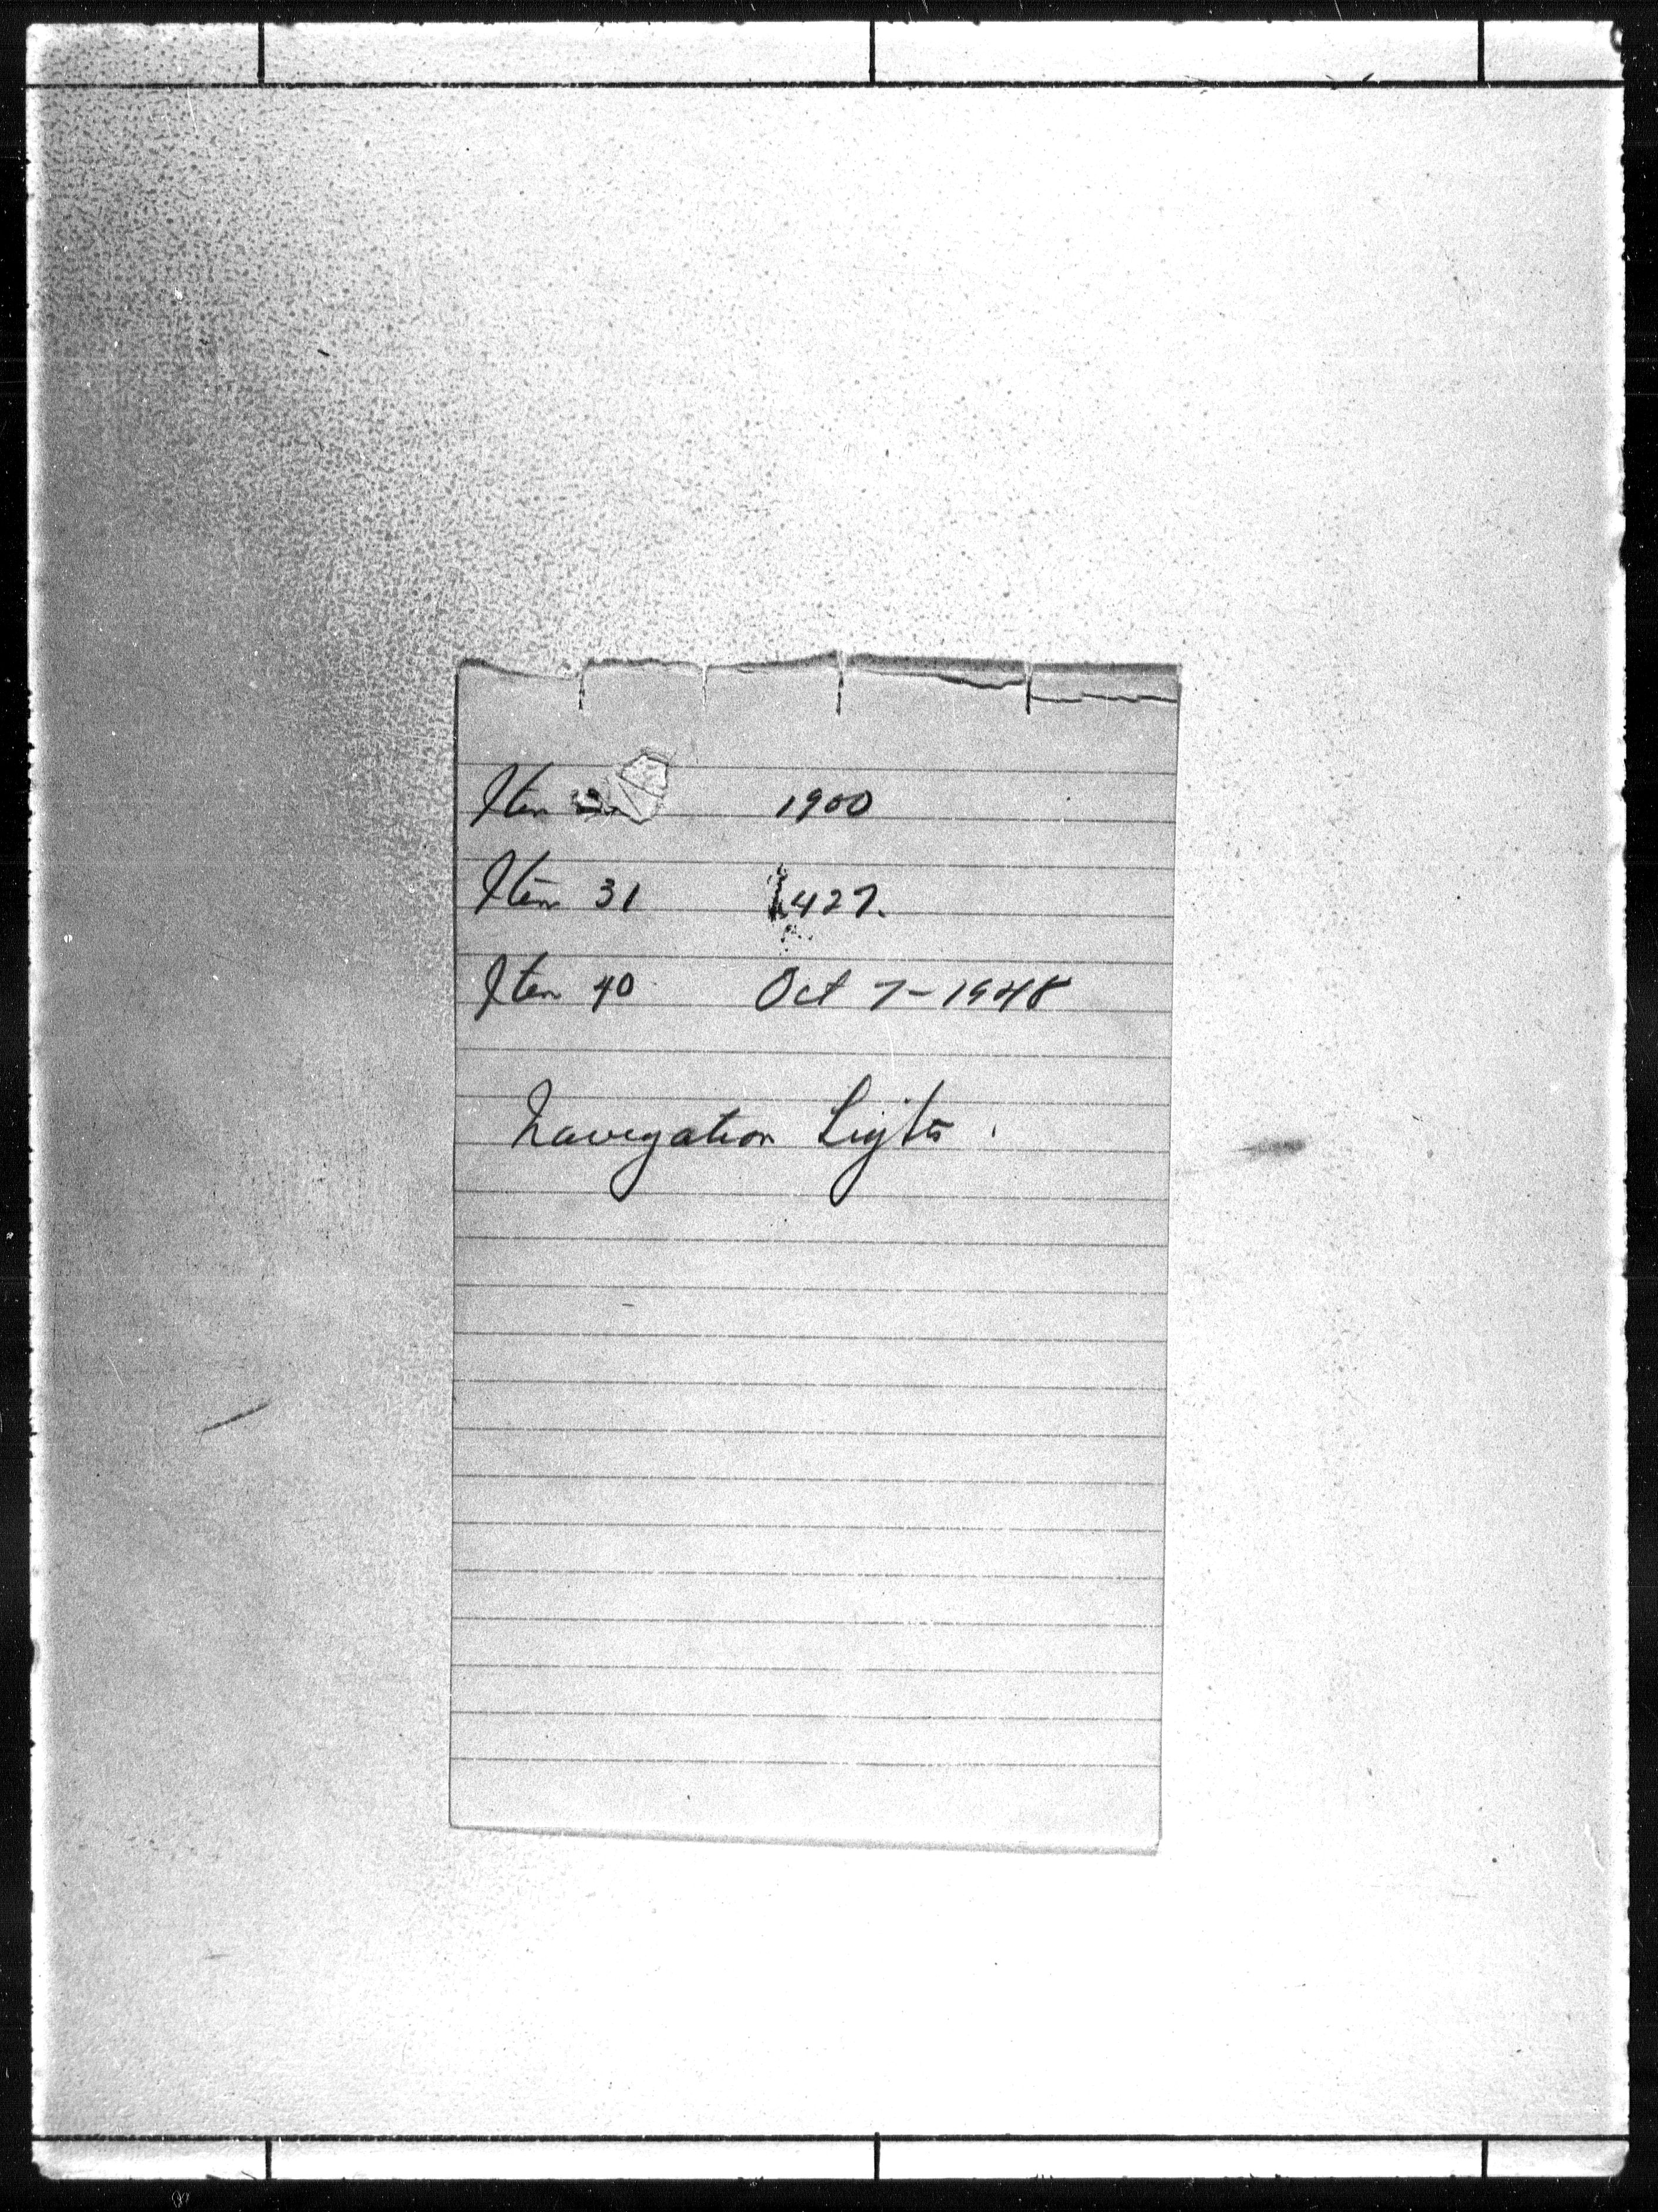 Item 1900
Item 31 427.
Item 40 Oct 7-1948
Navigation Lights.